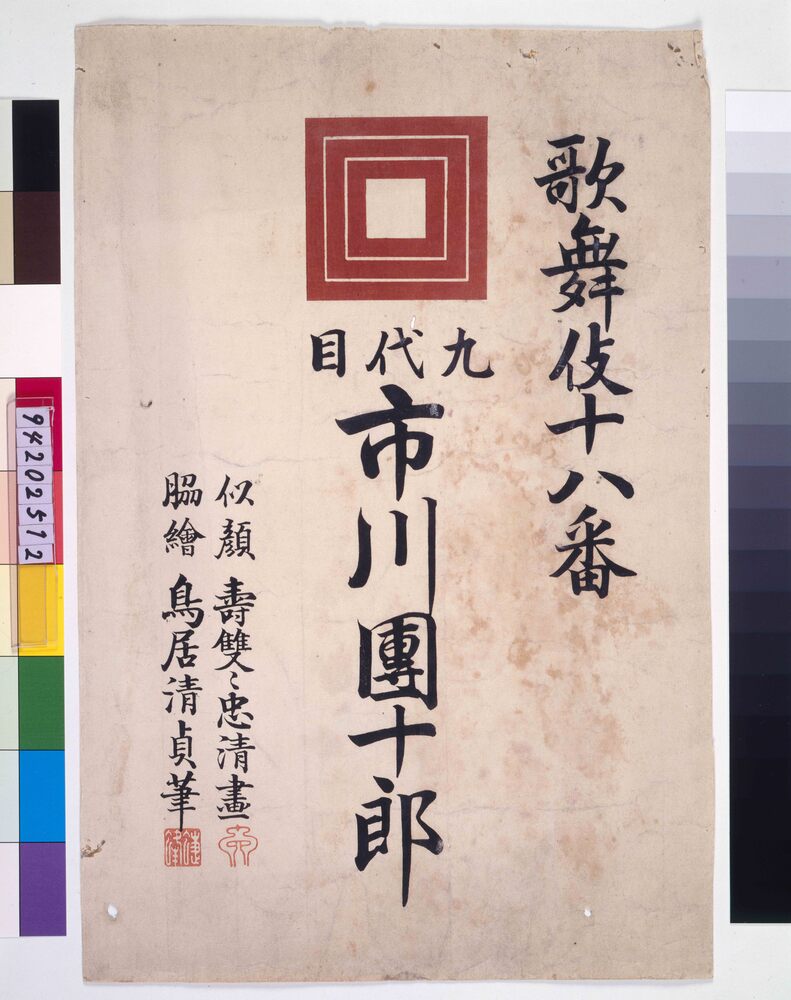 歌舞伎十八番
九代目
市川團十郎
似顔 壽雙〻忠清畫
脇繪 鳥居清貞筆
94202512